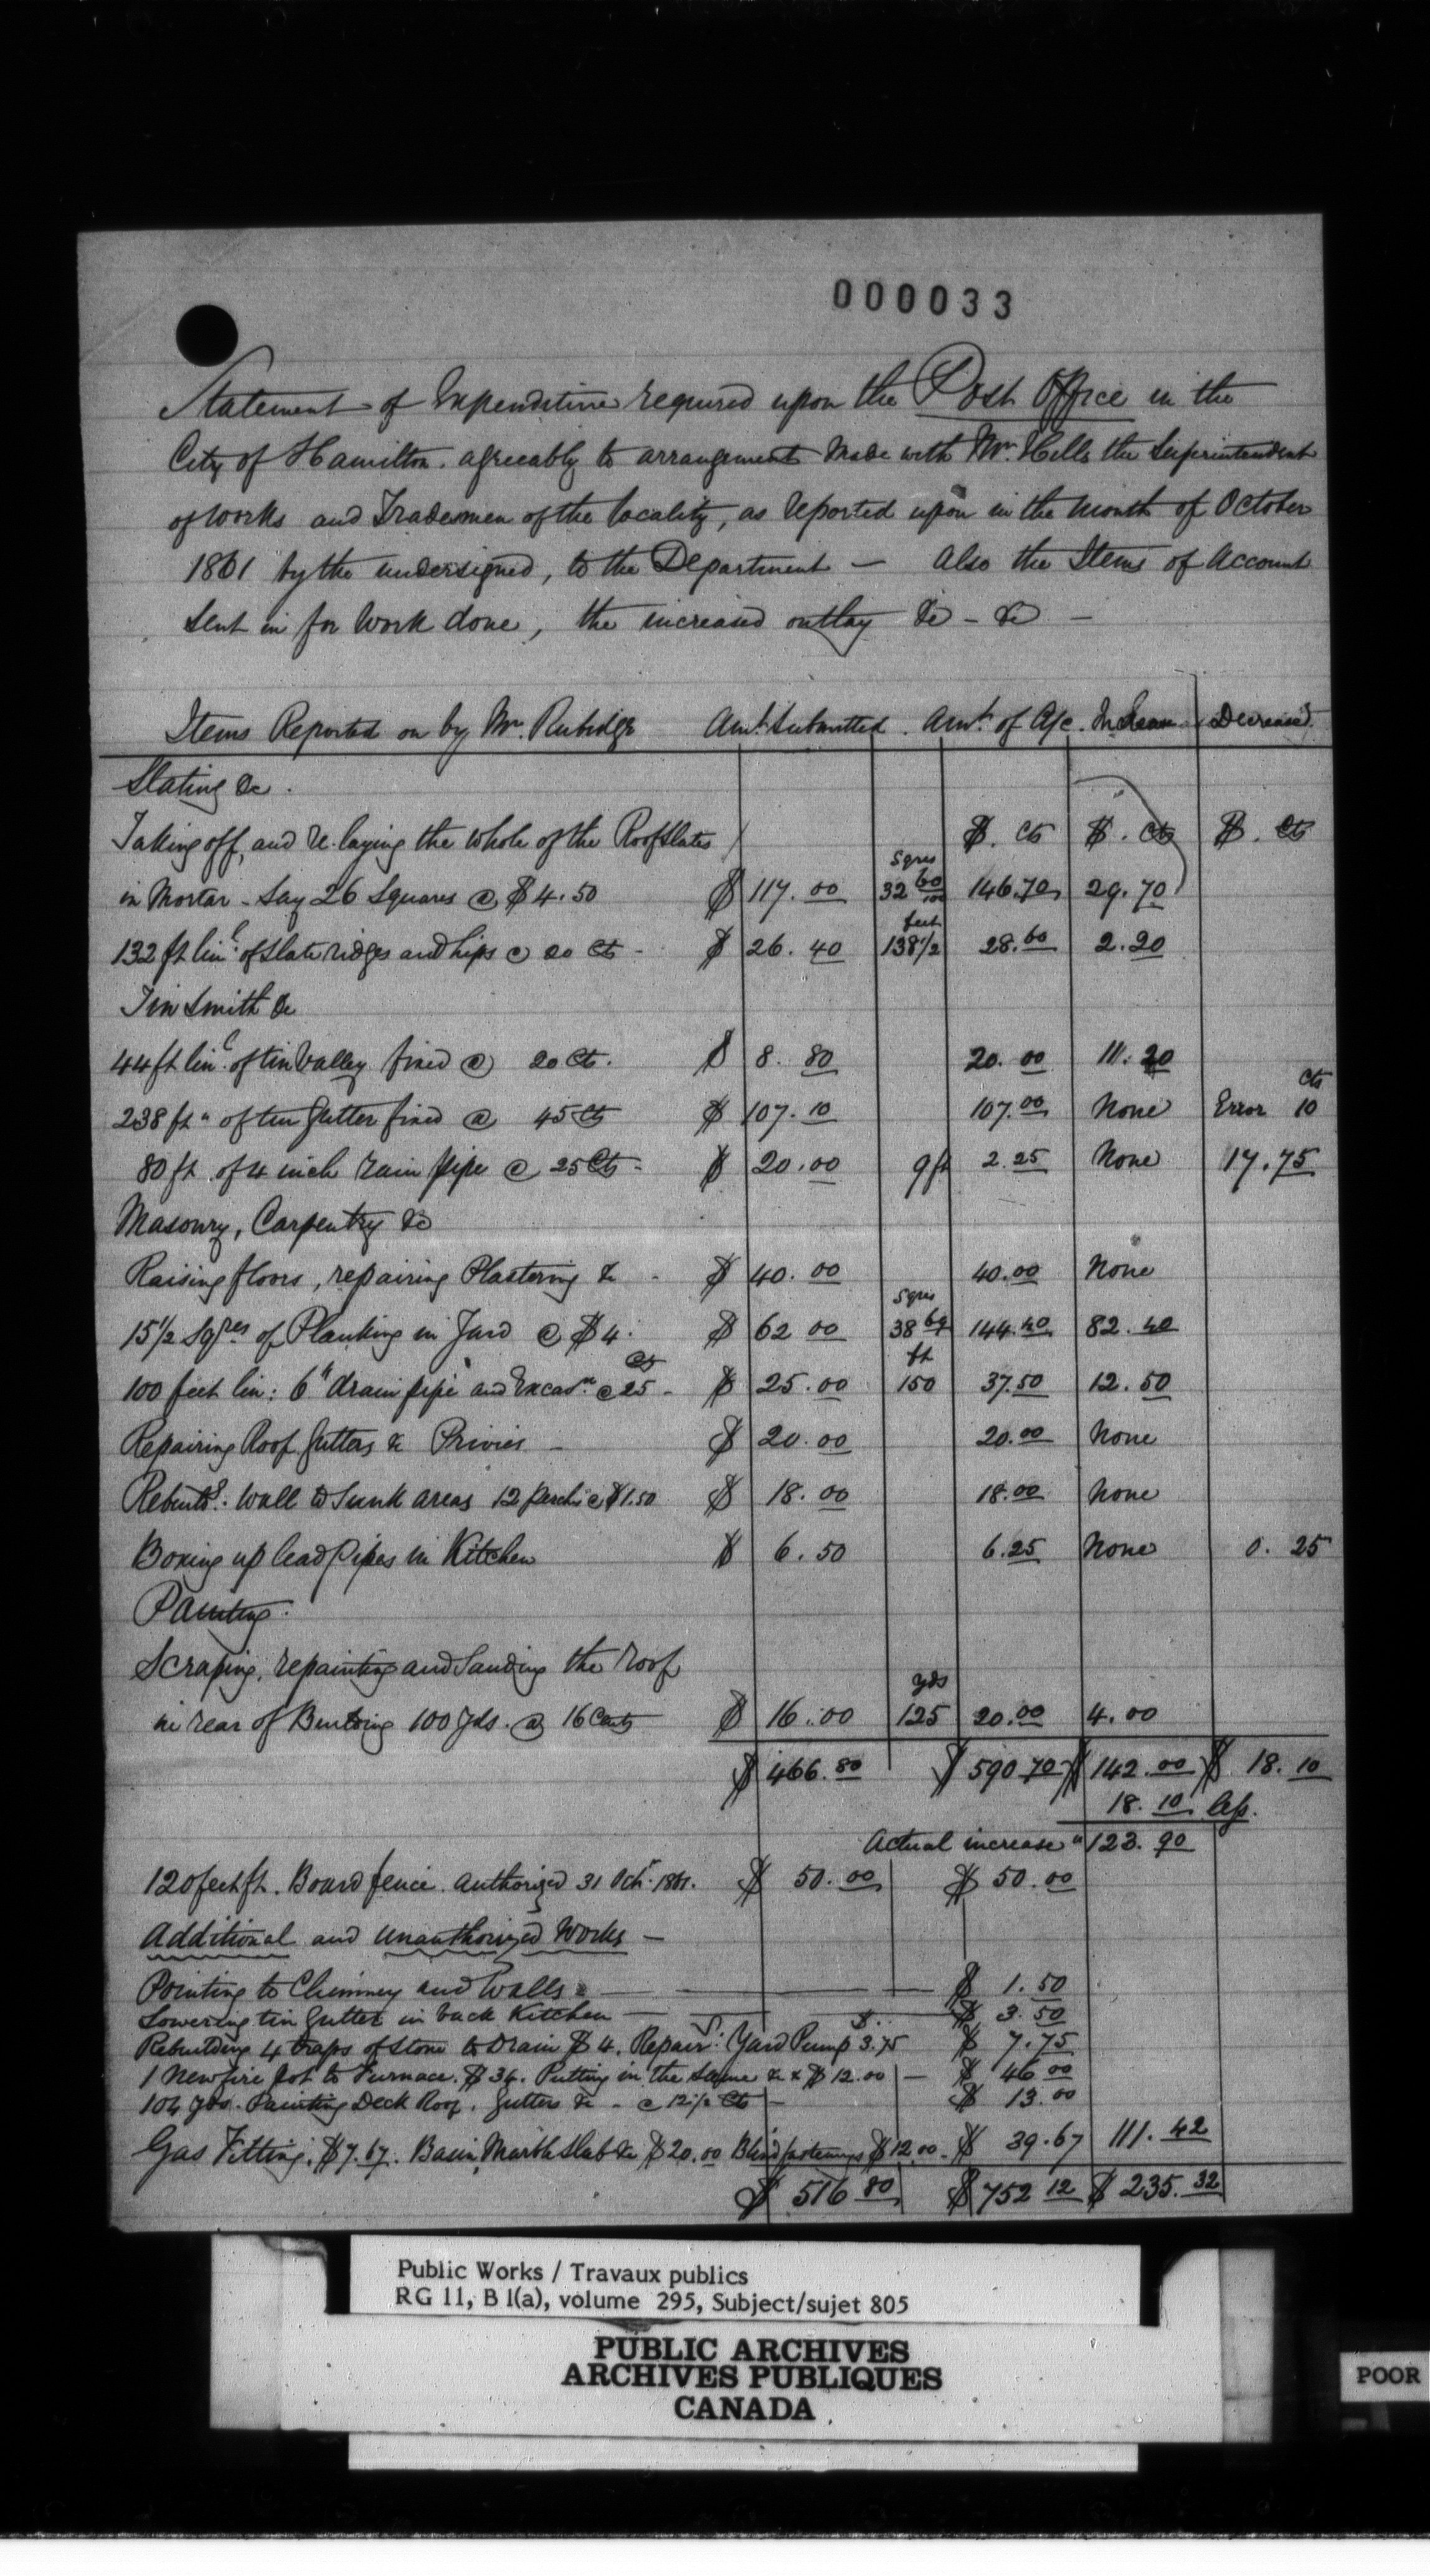 000033
Statement of Expenditure required upon the Post Office in the
City of Hamilton. agreeably to arrangements made with Mr. Hills the Superintendent
of works and Tradesmen of the locality, as reported upon in the month of October
1861 by the undersigned, to the Department — Also the Items of Account
sent in for Work done, the increased outlay &c - &c -
Items Reported on by Mr. Rubidge Amt. Submitted. Amt. of A/c. Increase Decrease
Slating &c.
Taking off, and re.laying the whole of the Roof Slates $. cts $. cts $. cts
in Mortar - Say 26 Squares @ $4.50 $ 117.00 sqrs 32 60/100 146.70 29.70
132 ft linl. of slate ridges and hips @ 20 cts - $ 26.40 feet 138 1/2 28.60 2.20
Tin Smith &c
44 ft linl. of tin Valley fixed @ 20 cts. $ 8.80 20.00 11.20
238 ft " of tin Gutter fixed @ 45 cts $ 107.10 107.00 None Error 10 cts
80 ft of 4 inch rain pipe @ 25 cts - $ 20.00 9 ft 2.25 None 17.75
Masonry, Carpentry &c
Raising floors, repairing Plastering &c - $ 40.00 40.00 None
15 1/2 Sqres of Planking in Yard @ $4. $ 62 00 sqrs 38 60 144.40 82.40
100 feet lin: 6" drain pipe and Excavn. @ 25 cts - $ 25.00 ft 150 37.50 12.50
Repairing Roof Gutters &c Privies - $ 20.00 20.00 None
Rebuildg. wall to Sunk areas 12 perchs @ $1.50 $ 18.00 18.00 None
Boxing up lead Pipes in Kitchen $ 6.50 6.25 None 0.25
Painting.
Scraping, repainting and Sanding the roof
in rear of Building 100 Yds. @ 16 Cents $ 16.00 yds 125 20.00 4.00
$ 466.80 $ 590 70 $ 142.00 $ 18.10
18.10 less.
Actual increase " 123.90
120 feet ft. Board fence. Authorized 31 Octr. 1861. $ 50.00 $ 50.00
Additional and Unauthorized Works —
Pointing to Chimney and Walls $ 1.50
Lowering tin Gutter in back Kitchen — $ 3.50
Rebuilding 4 traps of Stone to Drain $4. Repair: Yard Pump $3.75 $ 7.75
1 New fire pot to Furnace. $34. Putting in the same &c &c $12.00 — $ 46 00
104 Yds. Painting Deck Roof. Gutters &c - @ 12 1/2 cts - $ 13.00
Gas Fitting. $7.67. Basin, Marble Slab &c $20.00 Blind fastenings $12.00. $ 39.67 111.42
$ 516 80 $ 752 12 $ 235.32
Public Works / Travaux publics
RG 11, B 1(a), volume 295, Subject/sujet 805
PUBLIC ARCHIVES
ARCHIVES PUBLIQUES
CANADA
POOR